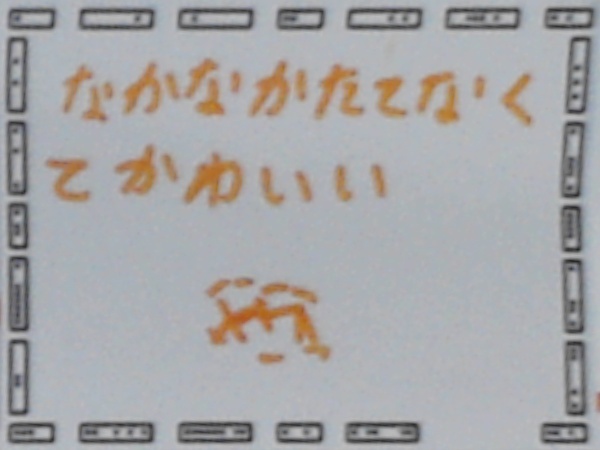 なかなかたてなく
てかわいい